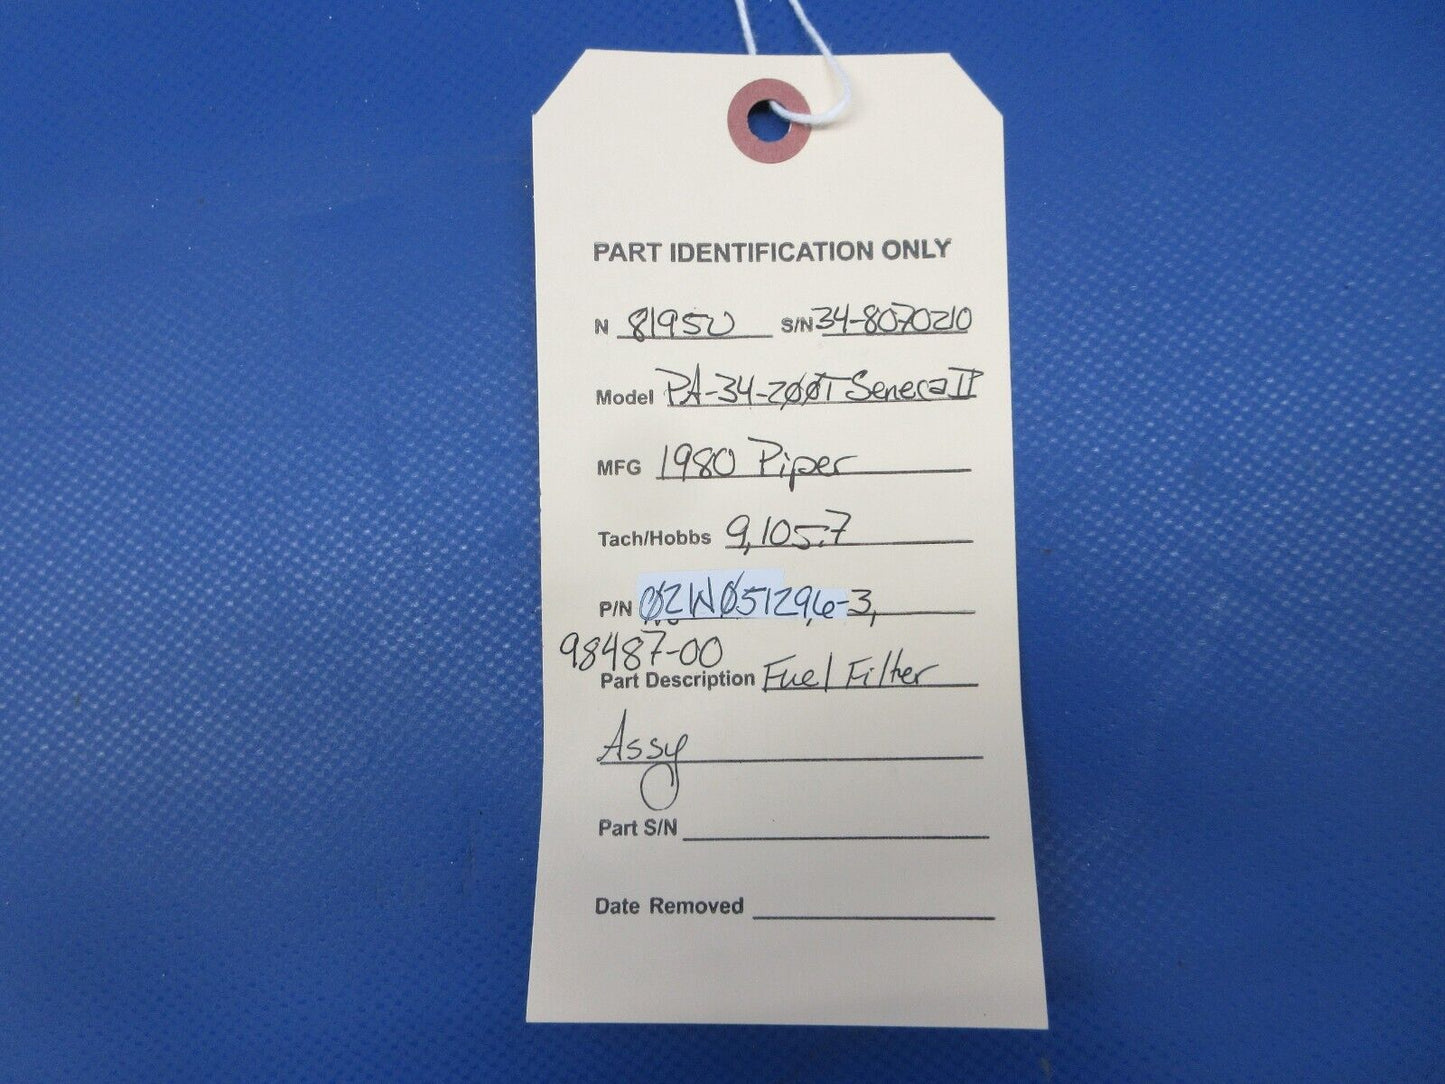 PART IDENTIFICATION ONLY
N 8195U S/N 34-8070210
Model PA-34-2ØØT Seneca II
MFG 1980 Piper
Tach/Hobbs 9,105.7
P/N Ø2WØ51296-3,
98487-00
Part Description Fuel Filter
Assy
Part S/N
Date Removed